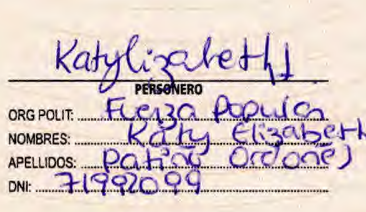 Katylizabeth
PERSONERO
ORG POLIT: Fuerza Popular
NOMBRES: Katy Elizabeth
APELLIDOS: Patiño Ordoñez
DNI: 71992099